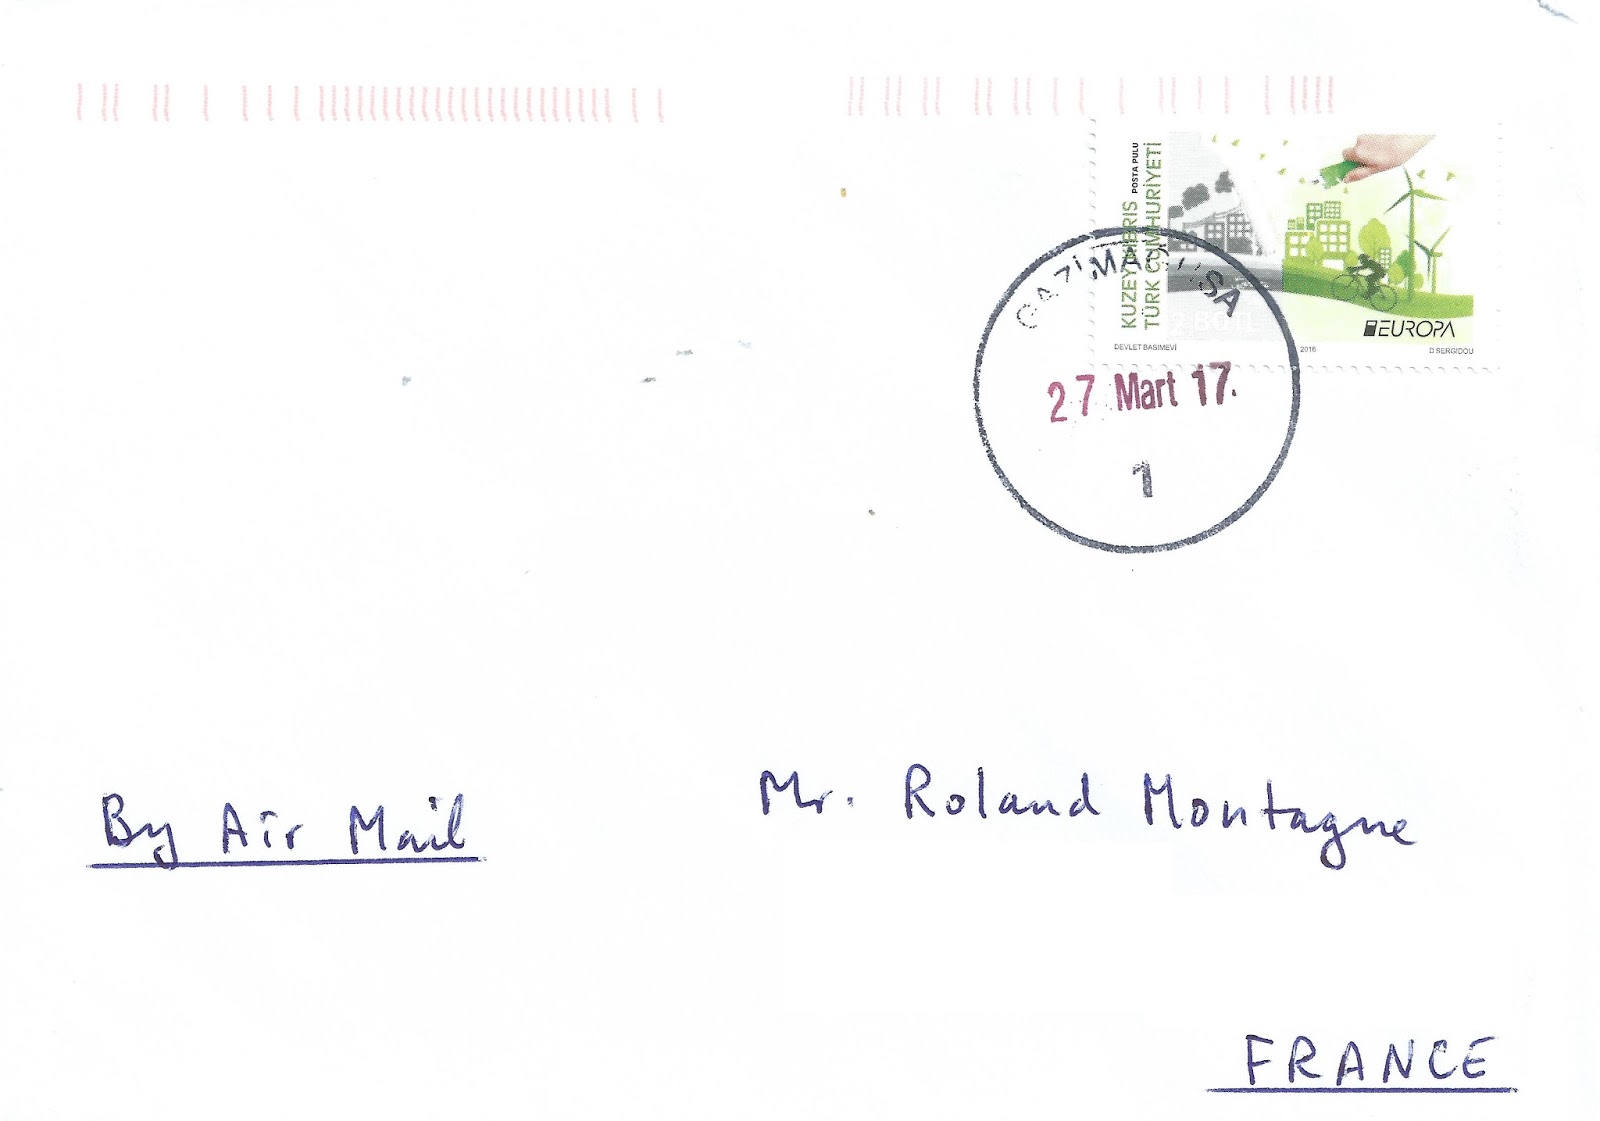 KUZEY KIBRIS
TÜRK CUMHURİYETİ
POSTA PULU
2.80 TL
EUROPA
DEVLET BASIMEVİ 2016 D SERGIDOU
GAZİMAĞUSA
27 Mart 17.
1
By Air Mail
Mr. Roland Montagne
FRANCE